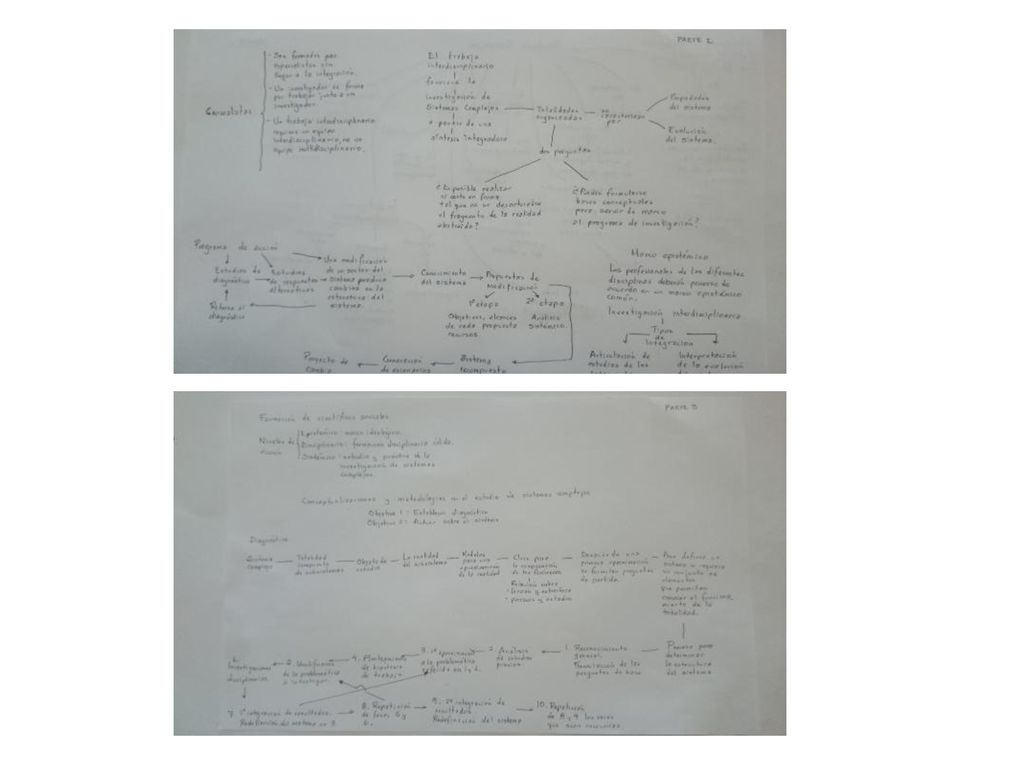 PARTE 2
- Son formados por
especialistas sin
llegar a la integración.
- Un investigador se forma
por trabajar junto a un
investigador.
- Un trabajo interdisciplinario
requiere un equipo
interdisciplinario, no un
equipo multidisciplinario.
El trabajo
interdisciplinario
favorece la
investigación de
Sistemas Complejos
a partir de una
síntesis integradora
Totalidades
organizadas
se
caracterizan
por
Composición
del sistema
Evolución
del sistema.
dos preguntas
¿Es posible realizar
el corte en forma
tal que no se desarticule
el fragmento de la realidad
abstraído?
¿Pueden formularse
bases conceptuales
para servir de marco
al programa de investigación?
Programa de acción
Estudios de
diagnóstico
Estudios
de respuestas
alternativas
Retorno al
diagnóstico
Una modificación
de un sector del
sistema produce
cambios en la
estructura del
sistema.
Conocimiento
del sistema
Propuestas de
Modificación
1ª etapa
Objetivos, alcances
de cada propuesta
recursos
2ª etapa
Análisis
sistémico.
Sistema
recompuesto
Construcción
de escenarios
Proyecto de
Cambio
Marco epistémico
Los profesionales de las diferentes
disciplinas deberán ponerse de
acuerdo en un marco epistémico
común.
Investigación interdisciplinaria
Tipos
de
integración
Articulación de
estudios de las
Interpretación
de la evolución
PARTE 3
Formación de científicos sociales
Niveles de
Epistémico: marco ideológico.
Disciplinario: formación disciplinaria sólida.
Sistémico: estudio y práctica de la
investigación de sistemas
complejos.
Conceptualizaciones y metodologías en el estudio de sistemas complejos
Objetivo 1: Establecer diagnóstico
Objetivo 2: Actuar sobre el sistema
Diagnóstico
Sistema
complejo
Totalidad
compuesta
de subsistemas
Objeto de
estudio
La realidad
del subsistema
Modelos
para una
aproximación
de la realidad
Clave para
la comprensión
de los fenómenos
Relación entre
- función y estructura
- procesos y estados
Después de una
primera aproximación
se formulan preguntas
de partida.
Para definir un
sistema se requiere
un conjunto de
elementos
que permitan
conocer el funciona-
miento de la
totalidad.
Proceso para
determinar
la estructura
del sistema
1. Reconocimiento
general.
Formulación de las
preguntas de base
2. Análisis
de estudios
previos
3. 1ª aproximación
a la problemática
referida en 1 y 2.
4. Planteamiento
de hipótesis
de trabajo
5. Identificación
de la problemática
a investigar.
6.
Investigaciones
disciplinarias.
7. 1ª integración de resultados.
Redefinición del sistema en 3
8. Repetición
de fases 5 y
6.
9. 2ª integración de
resultados
Redefinición del sistema
10. Repetición
de 8 y 9 las veces
que sean necesarias.